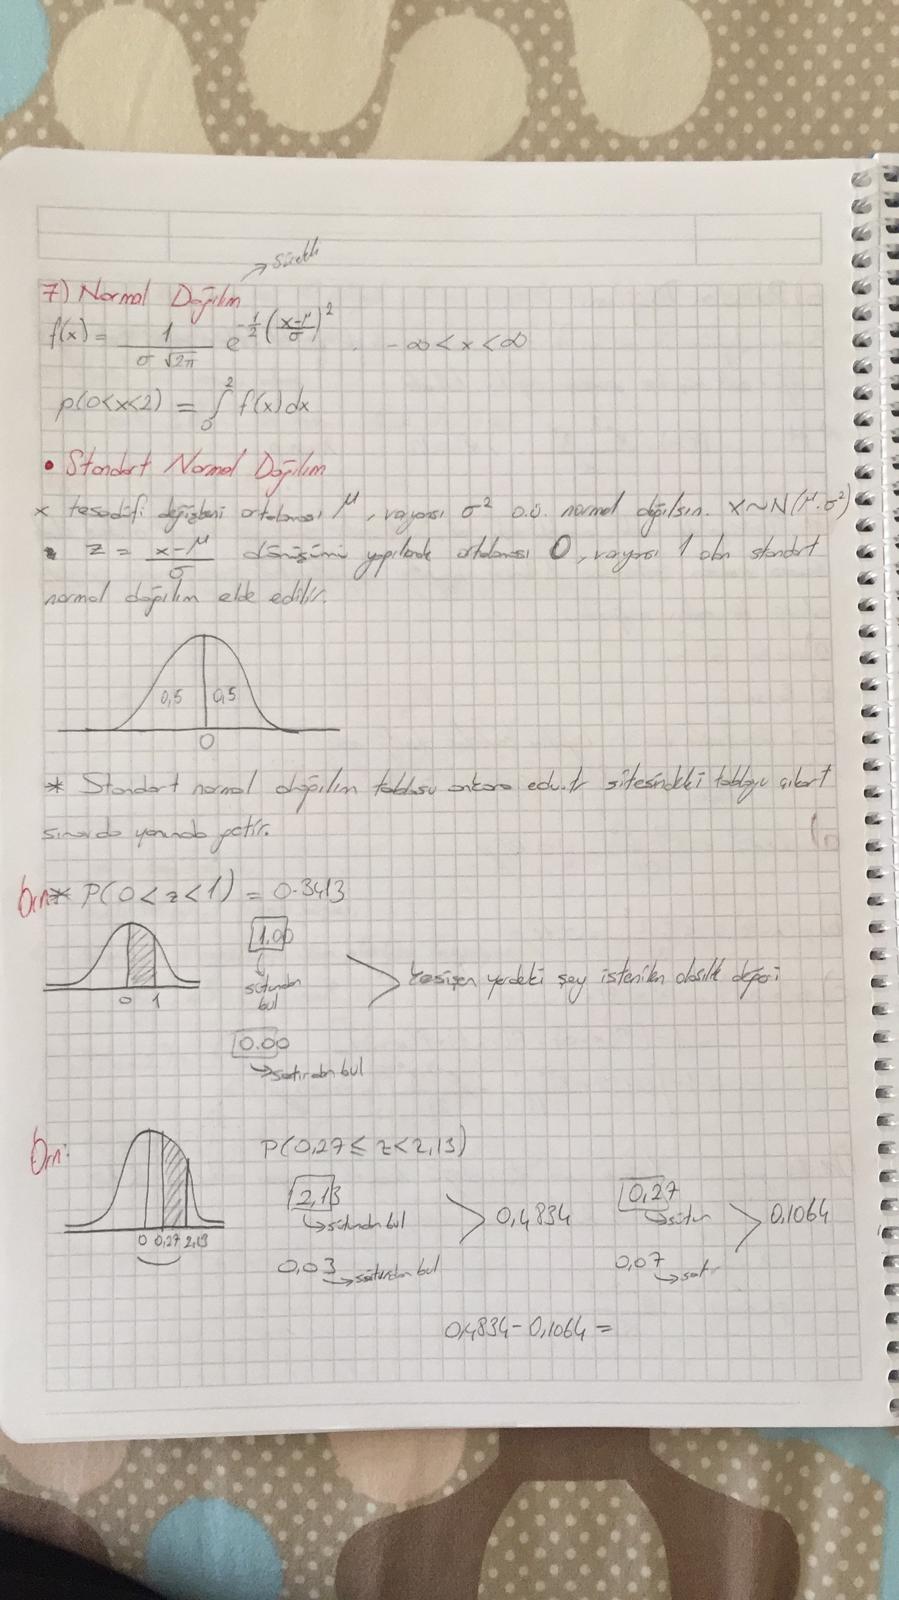 → Sürekli
7) Normal Dağılım
f(x) = 1 / σ √2π e^-1/2 (x-μ/σ)^2 , -∞ < x < ∞
p(0<x<2) = ∫₀² f(x) dx
• Standart Normal Dağılım
x tesadüfi değişkeni ortalaması μ, varyansı σ² o.ü. normal dağılsın. X~N(μ.σ²)
• z = x-μ / σ dönüşümü yapılarak ortalaması 0, varyansı 1 olan standart
normal dağılım elde edilir.
0,5 0,5
0
* Standart normal dağılım tablosu ankara edu.tr sitesindeki tabloyu çıkart
sınavda yanında getir.
Örn* P(0<z<1) = 0.3413
1.00
sütundan
bul
kesişen yerdeki şey istenilen olasılık değeri
0 1
0.00
→ satırdan bul
Örn: P(0,27 ≤ z < 2,13)
2,13 0,27
→ sütundan bul 0,4834 → sütun 0,1064
0 0,27 2,13
0,03 → satırdan bul 0,07 → satır
0,4834 - 0,1064 =